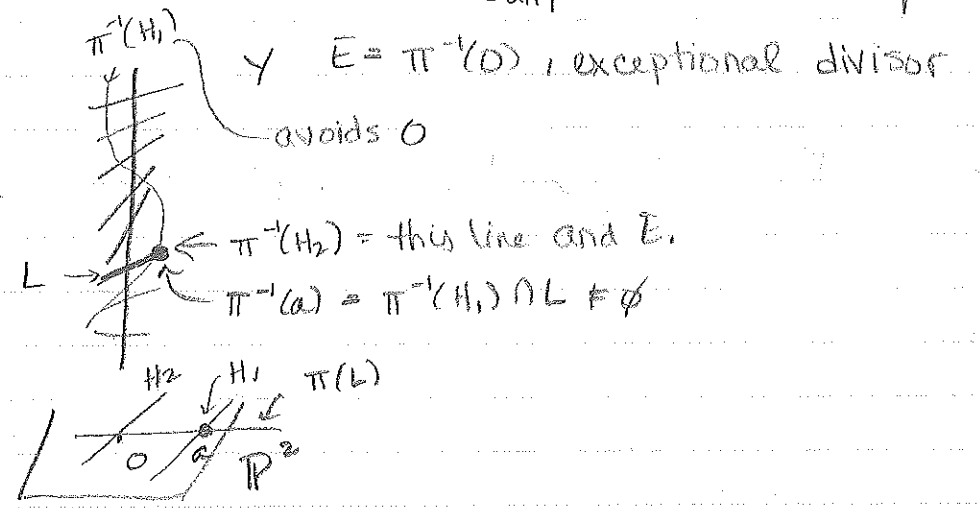 π⁻¹(H₁)
Y E = π⁻¹(0), exceptional divisor
avoids 0
π⁻¹(H₂) = this line and E.
L
π⁻¹(a) = π⁻¹(H₁) ∩ L ≠ ∅
H2 H₁ π(L)
0 a ℙ²